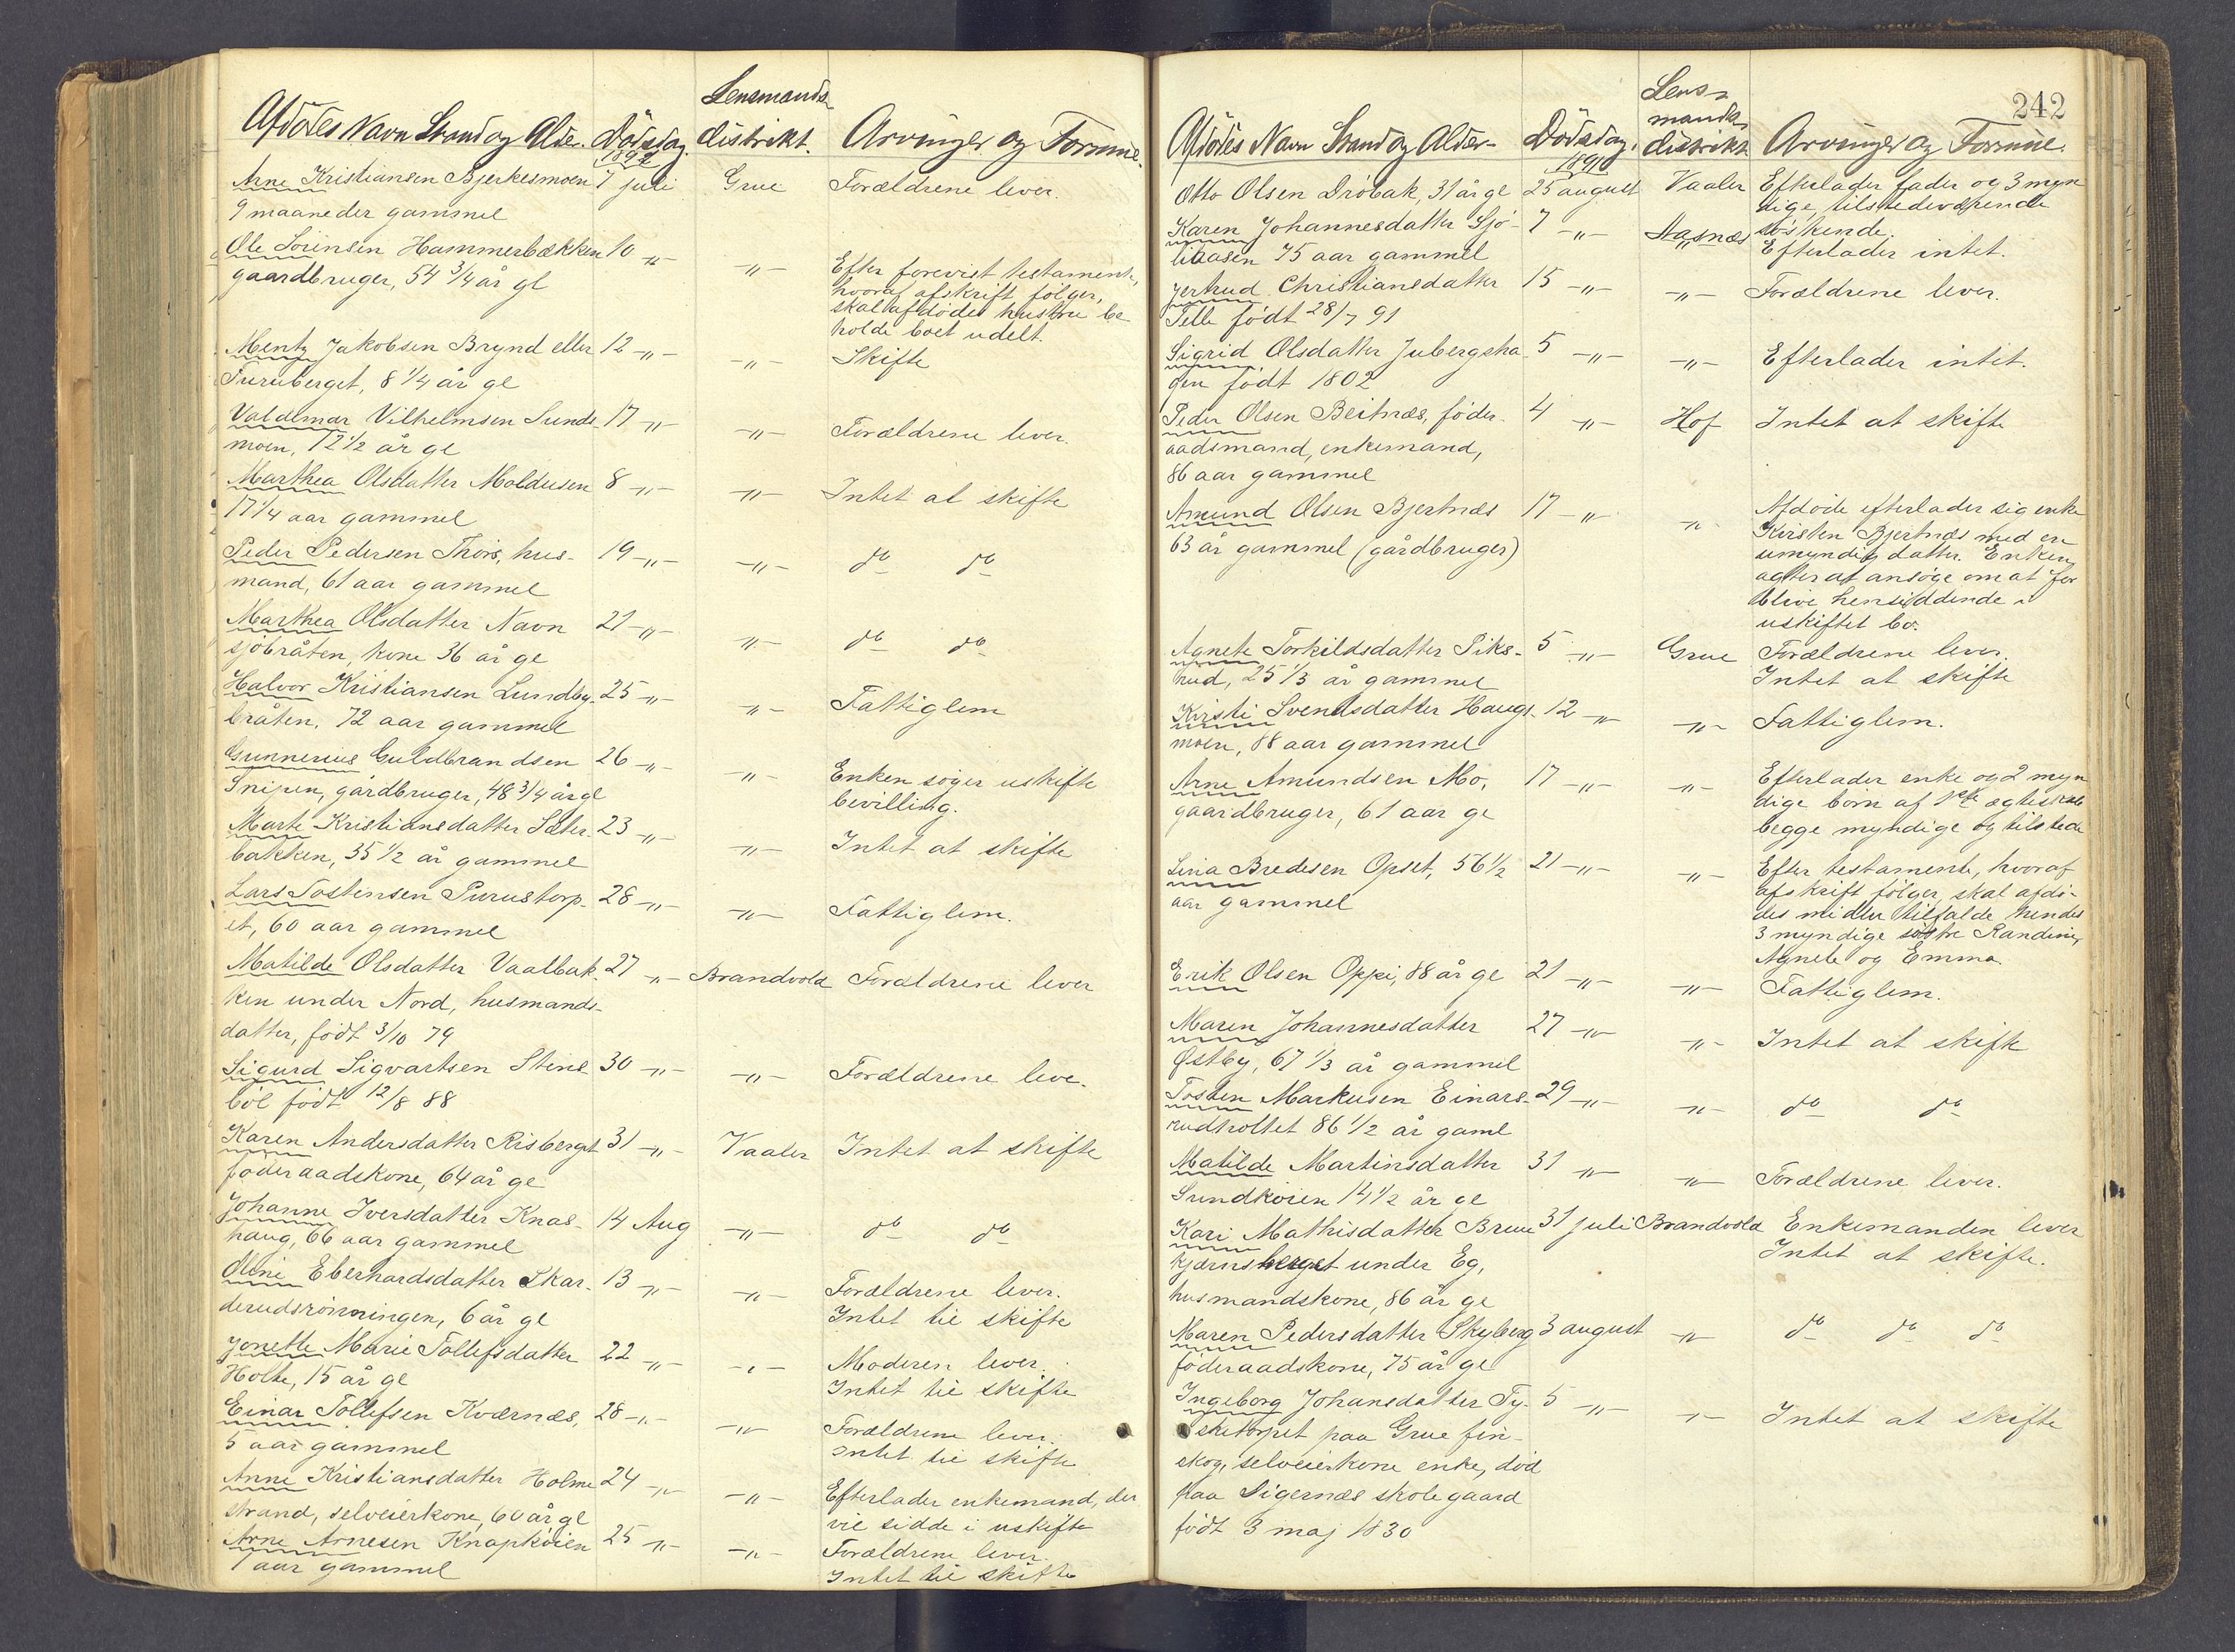 Lensmands-
Afdødes Navn Stand og Alder. Dødsdag. distrikt. Arvinger og Formue.
189
Arne Kristiansen Bjerkesmoen 7 juli Grue Forældrene lever.
9 maaneder gammel
Ole Sørensen Hammerbækken 10 -"- -"- Efter forevist testamente,
gaardbruger, 54 3/4 år gl hvoraf afskrift følger,
skal afdødes hustru be-
holde boet udelt.
Mentz Jakobsen Brynd eller 12 -"- -"- Skifte
Furuberget, 8 1/4 år gl
Valdemar Vilhelmsen Sunds- 17 -"- -"- Forældrene lever.
moen, 12 1/2 år gl
Marthea Olsdatter Moldusen 8 -"- -"- Intet at skifte
17 1/4 aar gammel
Peder Pedersen Thors, hus- 19 -"- -"- do do
mand, 61 aar gammel
Marthea Olsdatter Navn 21 -"- -"- do do
sjøbråten, kone 36 år gl
Halvor Kristiansen Lundby- 25 -"- -"- Fattiglem
bråten, 72 aar gammel
Gunnerius Guldbrandsen 26 -"- -"- Enken søger uskifte
Snipen, gårdbruger, 48 3/4 år gl bevilling.
Marte Kristiansdatter Sæter- 23 -"- -"- Intet at skifte
bakken, 35 1/2 år gammel
Lars Tostensen Purustorp- 28 -"- -"- Fattiglem.
et, 60 aar gammel
Matilde Olsdatter Vaalbak- 27 -"- Brandvold Forældrene lever
ken under Nord, husmands-
datter, født 3/10 79
Sigurd Sigvartsen Stene- 30 -"- -"- Forældrene leve.
bøl født 12/8 88
Karen Andersdatter Risberget 31 -"- Vaaler Intet at skifte
føderaadskone, 64 år gl
Johanne Iversdatter Knas- 14 Aug -"- do do
haug, 66 aar gammel
Oline Eberhardsdatter Skar- 13 -"- -"- Forældrene lever.
derudsrønningen, 6 år gl Intet til skifte
Jonette Marie Tollefsdatter 22 -"- -"- Moderen lever.
Holte, 15 år gl Intet til skifte
Einar Tollefsen Kværnæs, 28 -"- -"- Forældrene lever.
5 aar gammel Intet til skifte
Anne Kristiansdatter Holme 24 -"- -"- Efterlader enkemand, der
strand, selveierkone, 60 år gl vil sidde i uskifte
Arne Arnesen Knapkøien 25 -"- -"- Forældrene lever.
1 aar gammel Intet til skifte
242
Lens-
mands
Afdødes Navn Stand og Alder- Dødsdag. distrikt Arvinger og Formue.
189
Otto Olsen Drøbak, 31 år gl 25 august Vaaler Efterlader fader og 3 myn
dige, tilstedeværende
søskende.
Karen Johannesdatter Sjø- 7 -"- Aasnæs Efterlader intet.
liaasen 75 aar gammel
Jertrud Christiansdatter 15 -"- -"- Forældrene lever.
Pelle født 28/7 91
Sigrid Olsdatter Jubergsha- 5 -"- -"- Efterlader intet.
gen født 1802
Peder Olsen Beitnæs, føder- 4 -"- Hof Intet at skifte
aadsmand, enkemand,
86 aar gammel
Amund Olsen Bjertnæs 17 -"- -"- Afdøde efterlader sig enke
63 år gammel (gårdbruger) Kirsten Bjertnæs med en
umyndig datter. Enken
agter at ansøge om at for
blive hensiddende i
uskiftet bo.
Agnete Torkildsdatter Piks- 5 -"- Grue Forældrene lever.
rud, 25 1/3 år gammel Intet at skifte
Kirsti Svendsdatter Haugs- 12 -"- -"- Fattiglem.
moen, 88 aar gammel
Arne Amundsen Mo, 17 -"- -"- Efterlader enke og 2 myn
gaardbruger, 61 aar gl dige børn af 1ste ægteskab
begge myndige og tilstede
Lina Bredesen Opset, 56 1/2 21 -"- -"- Efter testamente, hvoraf
aar gammel afskrift følger, skal afdø-
des midler tilfalde hendes
3 myndige søstre Randine,
Agnete og Emma.
Erik Olsen Oppi, 88 år gl 21 -"- -"- Fattiglem.
Maren Johannesdatter 27 -"- -"- Intet at skifte
Østby, 67 1/3 år gammel
Tosten Markusen Einars- 29 -"- -"- do do
rudholtet 86 1/2 år gaml
Matilde Martinsdatter 31 -"- -"- Forældrene lever.
Sundkøien 14 1/2 år gl
Kari Mathisdatter Bruu 31 juli Brandvold Enkemanden lever
kjærnsberget under Eg, Intet at skifte.
husmandskone, 86 år gl
Maren Pedersdatter Skyberg 3 august -"- do do do
føderaadskone, 75 år gl
Ingeborg Johansdatter Ty- 5 -"- -"- Intet at skifte
sketorpet paa Grue fin-
skog, selveierkone enke, død
paa Digernæs skolegaard
født 3 maj 1830